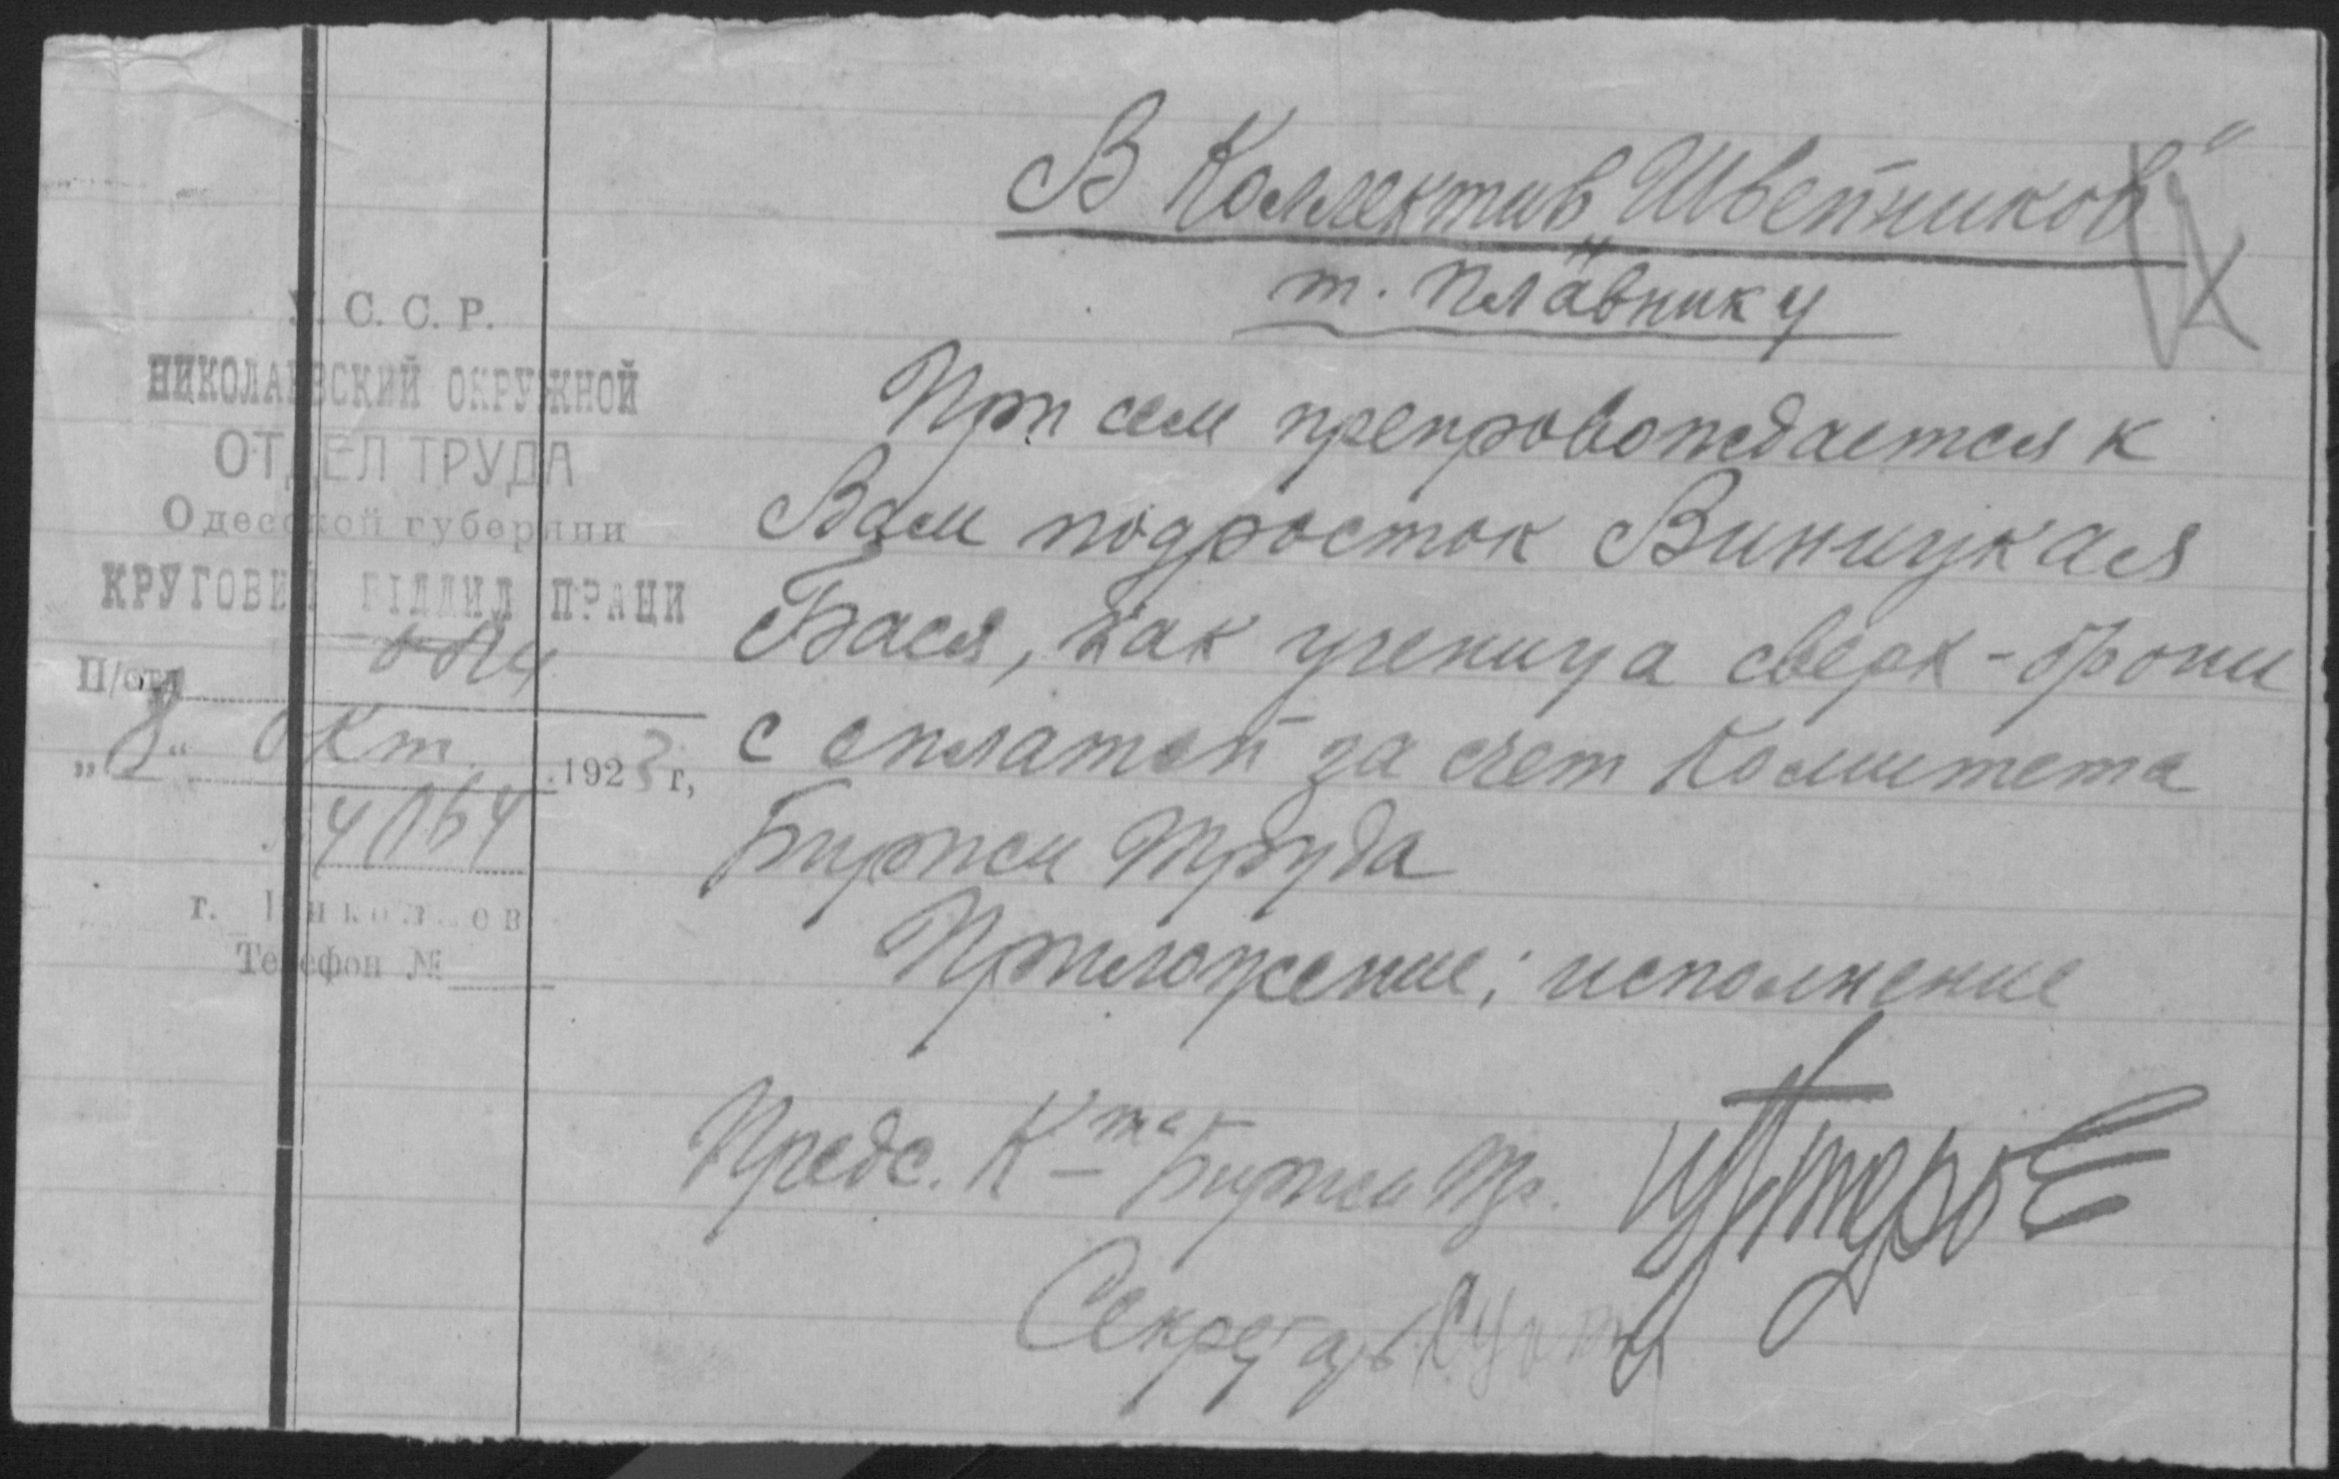 В Коллектив „Швейников"
т. Плавнику
У. С. С. Р.
НИКОЛАЕВСКИЙ ОКРУЖНОЙ
ОТДЕЛ ТРУДА
Одесской губернии
КРУГОВИЙ ВІДДИЛ ПРАЦИ
П/отд
„8“ окт. 1923 г,
г. Николаев
Телефон №
При сем препровождается к
Вам подросток Виницкая
Бася, как ученица сверх-брони
с оплатой за счет Комитета
Биржи Труда
Приложение; исполнение
Предс. К-та Биржи Тр.
Секретарь